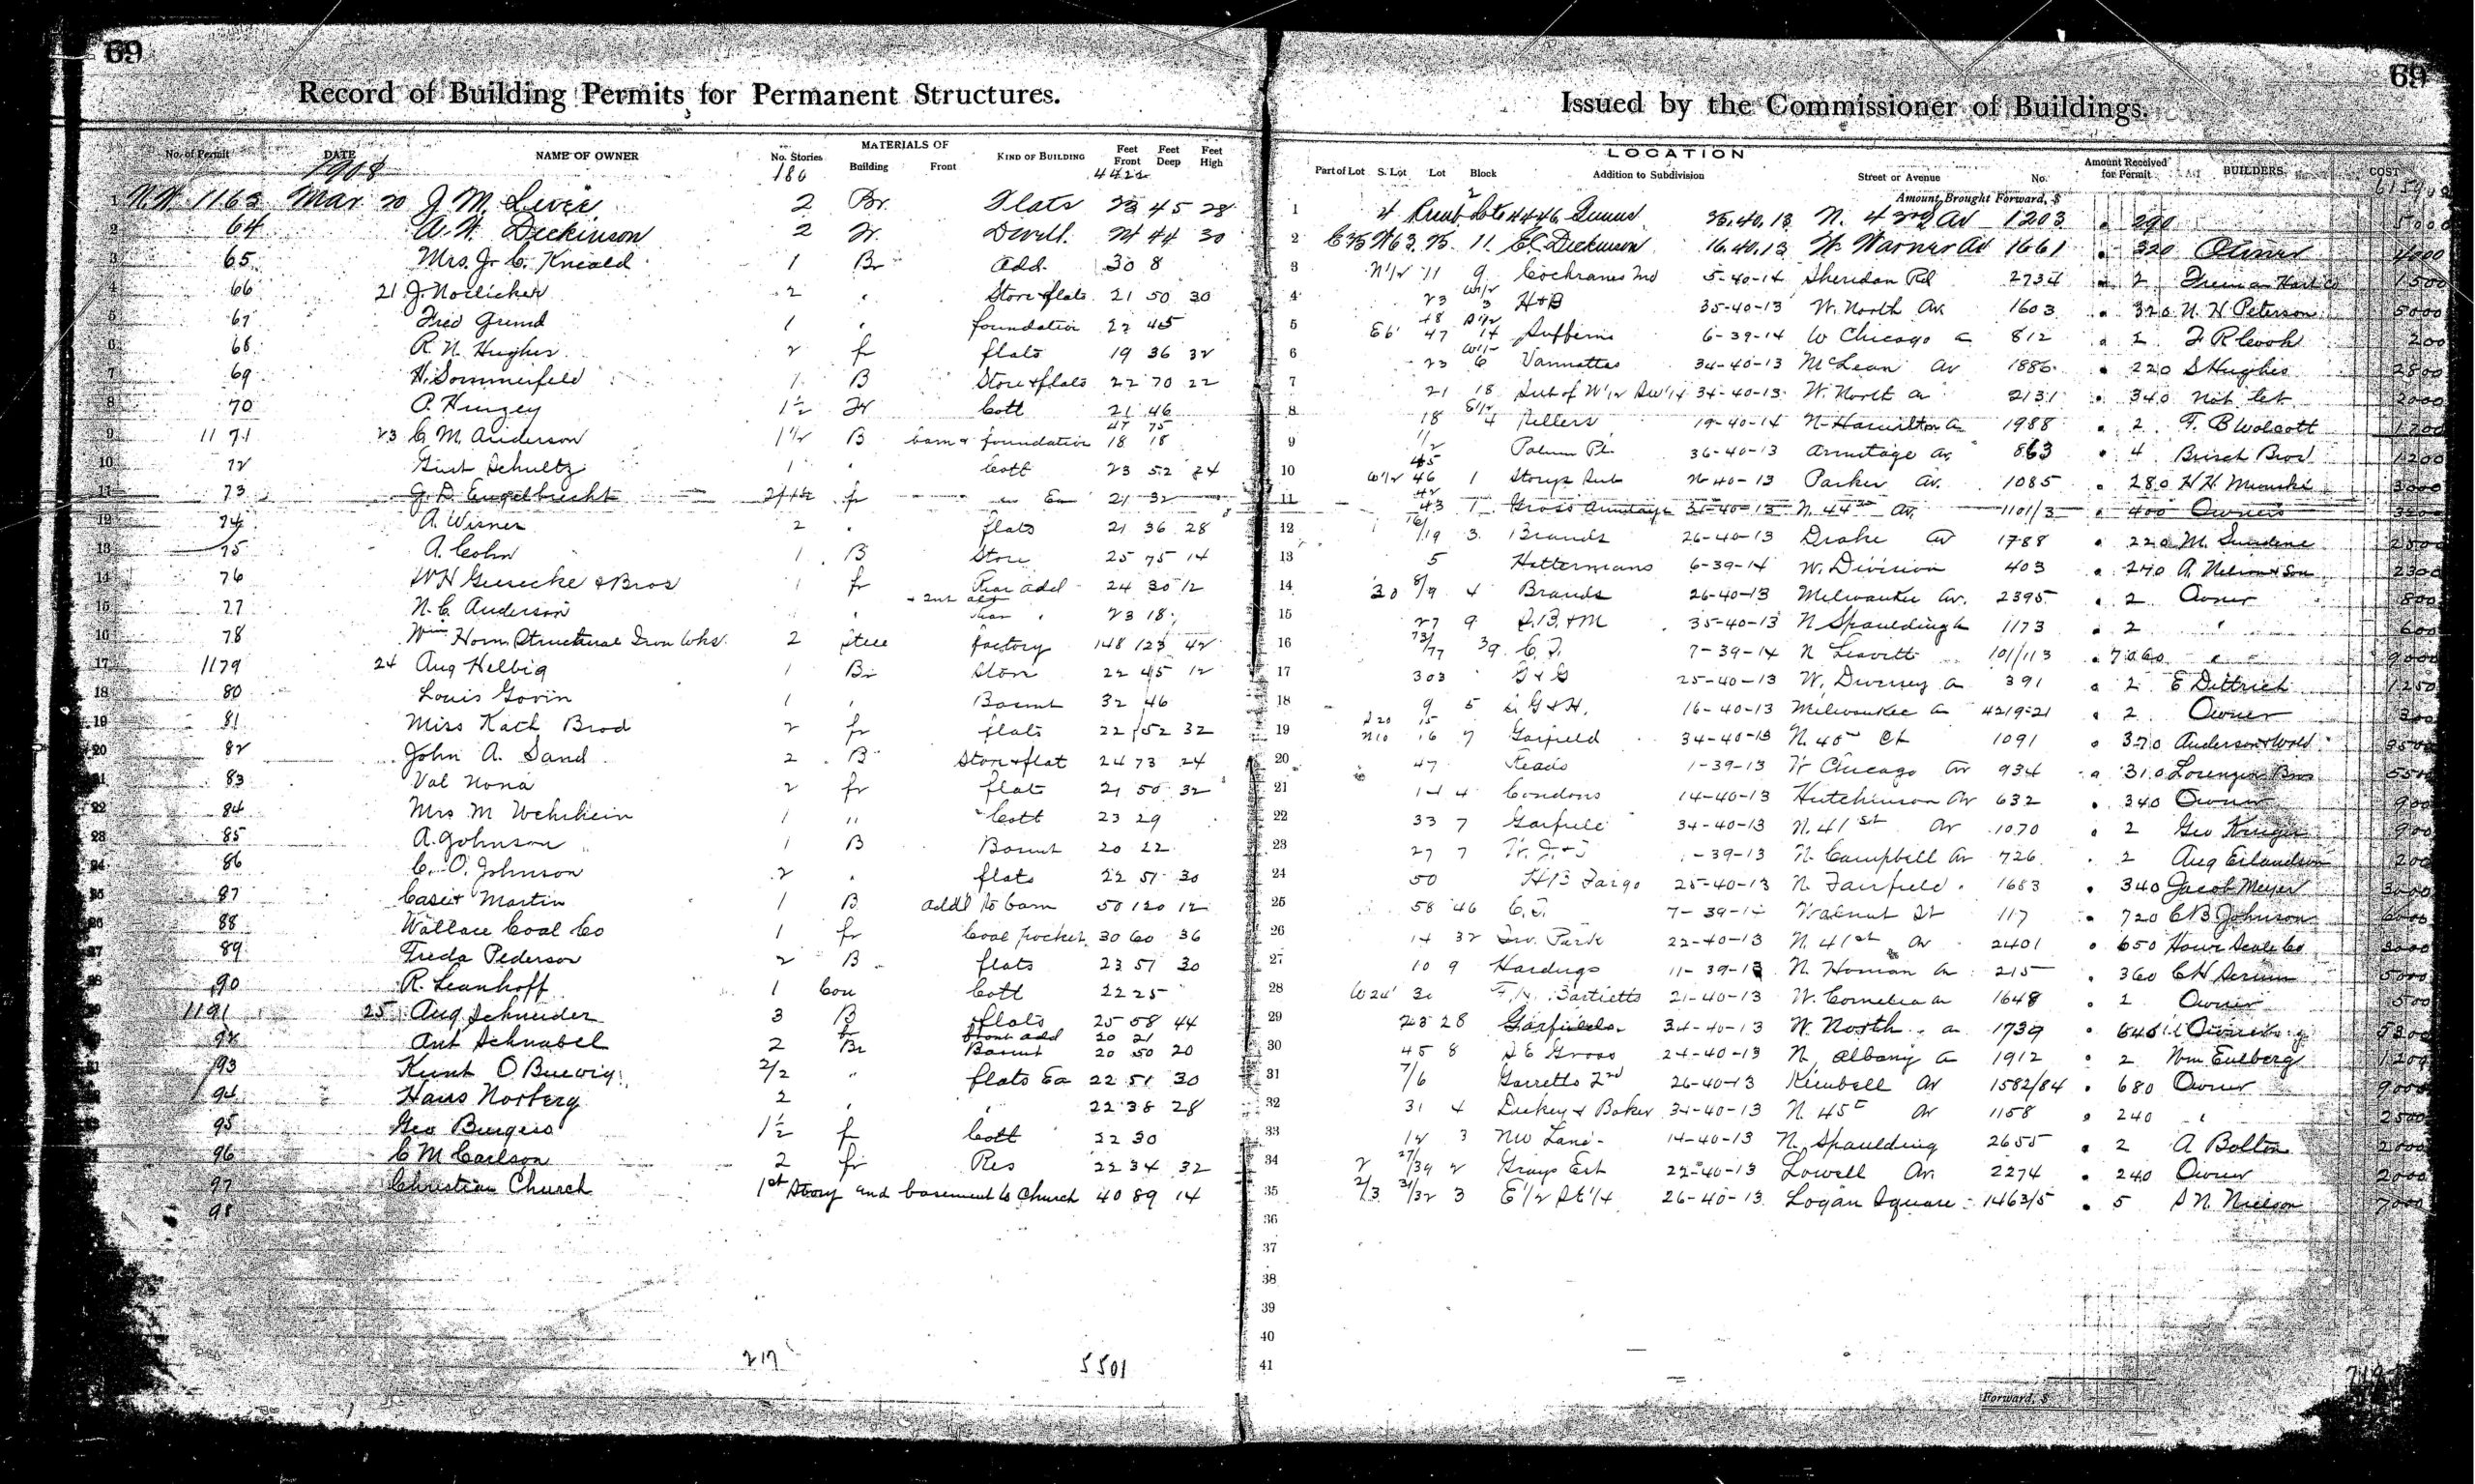 69
69
Record of Building Permits for Permanent Structures.
Issued by the Commissioner of Buildings.
No. of Permit DATE NAME OF OWNER No. Stories MATERIALS OF Building Front KIND OF BUILDING Feet Front Feet Deep Feet High
LOCATION
Part of Lot S. Lot Lot Block Addition to Subdivision Street or Avenue No. Amount Received for Permit BUILDERS COST
1908 180 4422
Amount Brought Forward, $
1 1163 Mar 20 J. M. 2 Br. Flats 23 45 28 1 4 N. 42nd Av 1203 290 5000
2 64 A. W. Dickinson 2 Fr. Dwell. 24 44 30 2 11 Dickinson 16.40.13 W. Warner Av 1661 320 Owner 4000
3 65 Mrs. J. C. Kneald 1 Br Add. 30 8 3 N 1/2 11 9 Cochranes 5-40-14 Sheridan Rd 2734 2 1500
4 66 21 J. Noelicker 2 " Store & flats 21 50 30 4 23 W1/2 3 H & B 35-40-13 W. North Av. 1603 320 N. H Peterson 5000
5 67 Fred Grund 1 " foundation 22 45 5 E6' 48 47 14 Sufferns 6-39-14 W Chicago a 812 2 F R Cook 200
6 68 R. N. Hughes 2 fr flats 19 36 32 6 23 6 Vannattas 34-40-13 McLean Av 1886 220 S Hughes 2800
7 69 H. Sommerfeld 1 B Store & flats 22 70 22 7 21 18 Sub of W 1/2 SW 1/4 34-40-13 W. North a 2131 340 Not let 2000
8 70 P. Hunzey 1 1/2 Fr Cott 21 46 8 18 E1/2 4 Sellers 19-40-14 N. Hamilton a 1988 2 F. B Wolcott 1200
9 1171 23 C. M. Anderson 1 1/2 B barn & foundation 47 75 18 18 9 1/2 Palmer Pl. 36-40-13 Armitage av 863 4 Brisch Bros 1200
10 72 Gust Schultz 1 " Cott 23 52 24 10 W1/2 45 46 1 Storys Sub 40-13 Parker Av. 1085 280 H H 3000
11 73 G. D. Engelbrecht fr Ea 21 32 11 42 43 Gross Armitage 34-40-13 N. 44th Av. 1101/3 400 Owners
12 74 A. Wisner 2 " flats 21 36 28 12 16/19 3 Brands 26-40-13 Drake Av 1788 220 M. 2500
13 75 A. Cohn 1 B Store 25 75 14 13 5 Hattermans 6-39-14 W. Division 403 240 A. Nelson & Son 2300
14 76 W H Giesecke & Bros 1 fr Rear add 24 30 12 14 30 8/9 4 Brands 26-40-13 Milwaukee Av. 2395 2 Owner 800
15 77 N. C. Anderson " " Rear " 23 18 15 27 9 S. B. & M 35-40-13 N Spaulding a 1173 2 " 600
16 78 Wm Horn Structural Iron Wks. 2 Steel factory 148 123 42 16 73/77 39 C. T. 7-39-14 N Leavitt 101/113 7060 " 9000
17 1179 24 Aug Helbig 1 Br Store 22 45 12 17 303 G & G 25-40-13 W. Diversey a 391 2 E Dittrich 1250
18 80 Louis Govin 1 " Basmt 32 46 18 9 5 G & H. 16-40-13 Milwaukee a 4219-21 2 Owner 300
19 81 Miss Kath Brod 2 fr flats 22 52 32 19 S20 N10 15 16 7 Garfield 34-40-13 N. 40th Ct 1091 370 Anderson & Wold 3500
20 82 John A. Sand 2 B Store & flat 24 73 24 20 47 Reads 1-39-13 W Chicago Av 934 310 Lorenzen Bros 5500
21 83 Val Nona 2 fr flat 21 50 32 21 14 4 Condons 14-40-13 Hutchinson Av 632 340 Owner 900
22 84 Mrs M Wehrhein 1 " Cott 23 29 22 33 7 Garfield 34-40-13 N. 41st Av 1070 2 Geo Kruger 900
23 85 A. Johnson 1 B Basmt 20 22 23 27 7 1-39-13 N. Campbell Av 726 2 Aug Erlandson 200
24 86 C. O. Johnson 2 " flats 22 51 30 24 50 H B Fargo 25-40-13 N. Fairfield 1683 340 Jacob Meyer 3000
25 87 Case & Martin 1 B addl to barn 50 120 12 25 58 46 C. T. 7-39-14 Walnut St 117 720 C B Johnson 6000
26 88 Wallace Coal Co 1 fr Coal pocket 30 60 36 26 14 32 Irv. Park 22-40-13 N. 41st Av 2401 650 Howe Scale Co 3000
27 89 Freda Pederson 2 B flats 23 51 30 27 10 9 Hardings 11-39-13 N. Homan a 215 360 C H 5000
28 90 R. Leanhoff 1 Con Cott 22 25 28 W24' 30 Bartletts 21-40-13 W. Cornelia a 1648 2 Owner 500
29 1191 25 Aug Schneider 3 B flats 25 58 44 29 28 Garfields 34-40-13 W North a 1739 5300
30 92 Ant Schnabel 2 fr Br front add Basmt 20 21 20 50 20 30 45 8 S E Gross 24-40-13 N. Albany a 1912 2 Wm Eulberg 1200
31 93 Kunt O. 2/2 " flats Ea 22 51 30 31 7/6 Garretts 2nd 26-40-13 Kimball Av 1582/84 680 Owner 9000
32 94 Hans Norberg 2 " " 22 38 28 32 31 4 Dickey & Baker 34-40-13 N. 45th Av 1158 240 " 2500
33 95 Geo Burgess 1 1/2 fr Cott 22 30 33 12 3 NW Land 14-40-13 N. Spaulding 2655 2 A Bolton 2000
34 96 C M Carlson 2 fr Res 22 34 32 34 2 27/39 2 Grays Est 22-40-13 Lowell Av. 2274 240 Owner 2000
35 97 Christian Church 1st Story and basement to Church 40 89 14 35 2/3 31/32 3 E 1/2 SE 1/4 26-40-13 Logan Square 1463/5 5 S N. Nielson 7000
98
36
37
38
39
40
41
217 5501
Forward, $